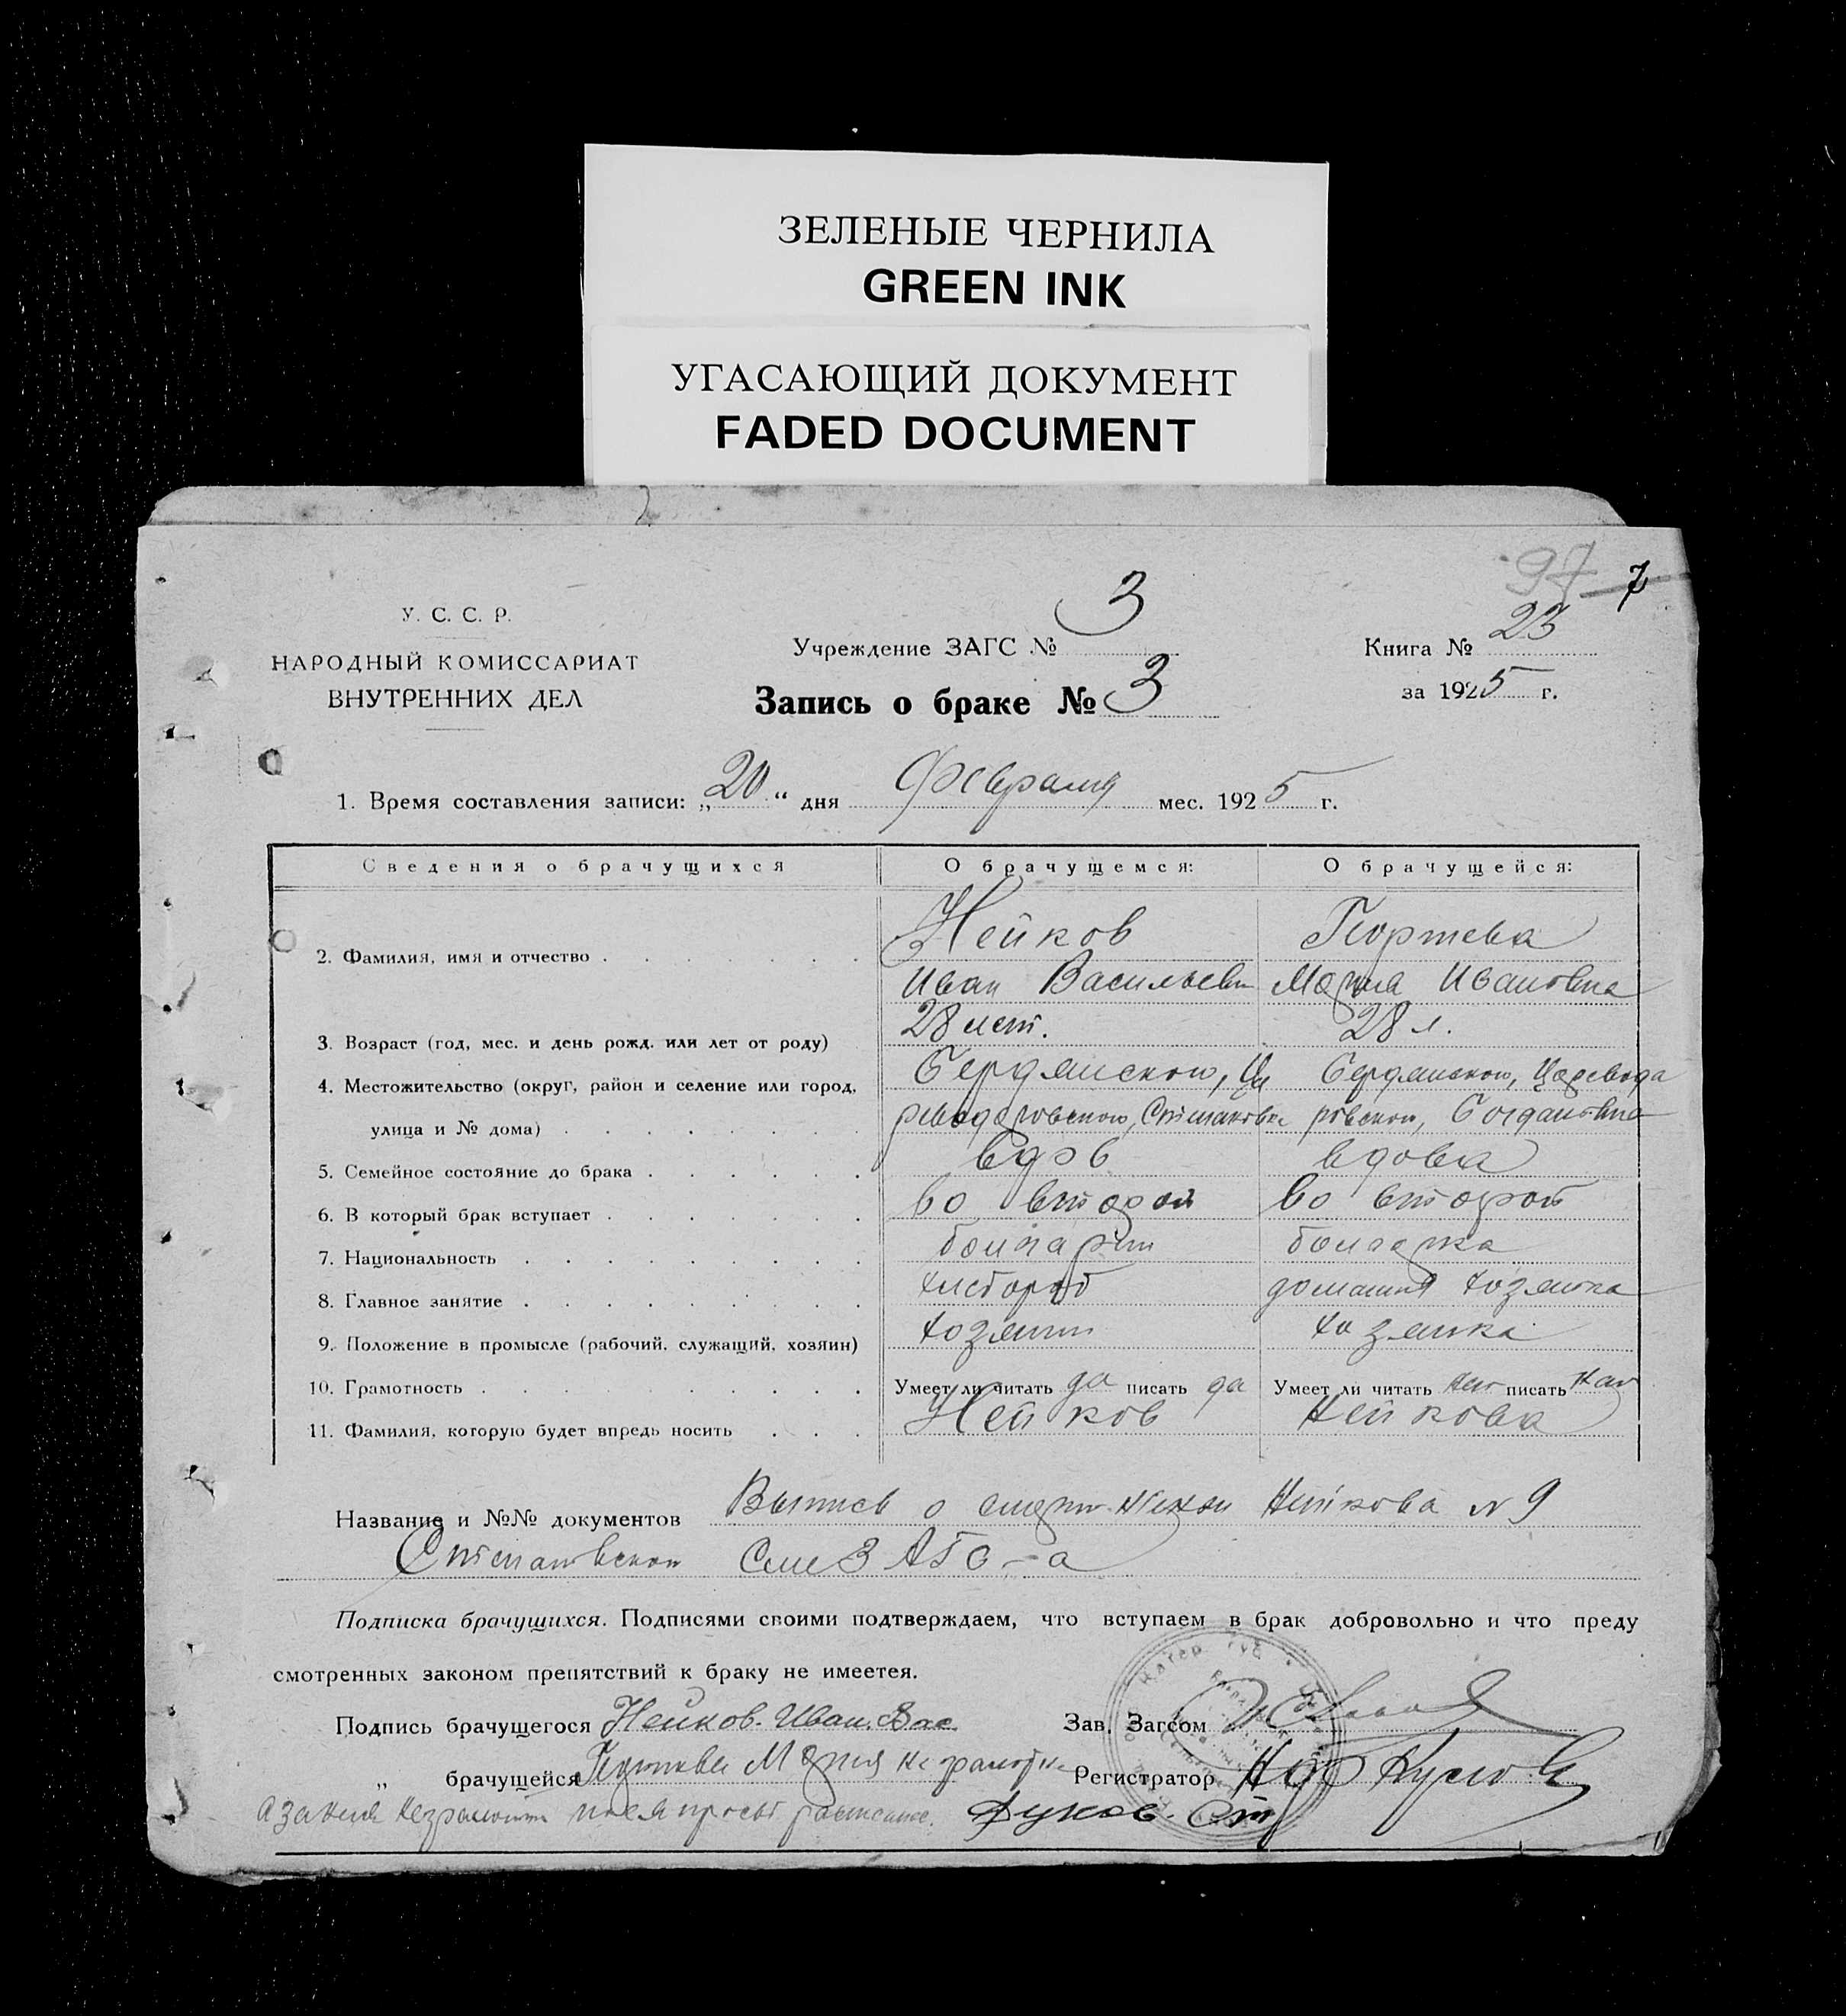 ЗЕЛЕНЫЕ ЧЕРНИЛА
GREEN INK
УГАСАЮЩИЙ ДОКУМЕНТ
FADED DOCUMENT
97 7
У. С. С. Р.
НАРОДНЫЙ КОМИССАРИАТ
ВНУТРЕННИХ ДЕЛ
Учреждение ЗАГС № 3
Запись о браке № 3
Книга № 23
за 1925 г.
1. Время составления записи: „20“ дня Февраля мес. 1925 г.
Сведения о брачущихся О брачущемся: О брачущейся:
Нейков Георгиева
2. Фамилия, имя и отчество
Иван Васильевич Мария Ивановна
3. Возраст (год, мес. и день рожд. или лет от роду) 28 лет. 28 л.
4. Местожительство (округ, район и селение или город, Бердянской, Ца Бердянской, Царевода
улица и № дома) реводаровской, Степановка ровской, Богдановка
5. Семейное состояние до брака вдов вдова
6. В который брак вступает во второй во второй
7. Национальность болгарин болгарка
8. Главное занятие хлебороб домашня хозяйка
9. Положение в промысле (рабочий, служащий, хозяин) хозяин хозяйка
10. Грамотность Умеет ли читать да писать да Умеет ли читать нет писать нет
11. Фамилия, которую будет впредь носить Нейков Нейкова
Название и №№ документов Выпись о смерти жены Нейкова № 9
Степановской Сель ЗАГС-а
Подписка брачущихся. Подписями своими подтверждаем, что вступаем в брак добровольно и что преду
смотренных законом препятствий к браку не имеется.
Подпись брачущегося Нейков. Иван. Вас. Зав. Загсом
„ брачущейся Мария неграмотна Регистратор
а за неграмотн просьб расписался. Дуков. Ст